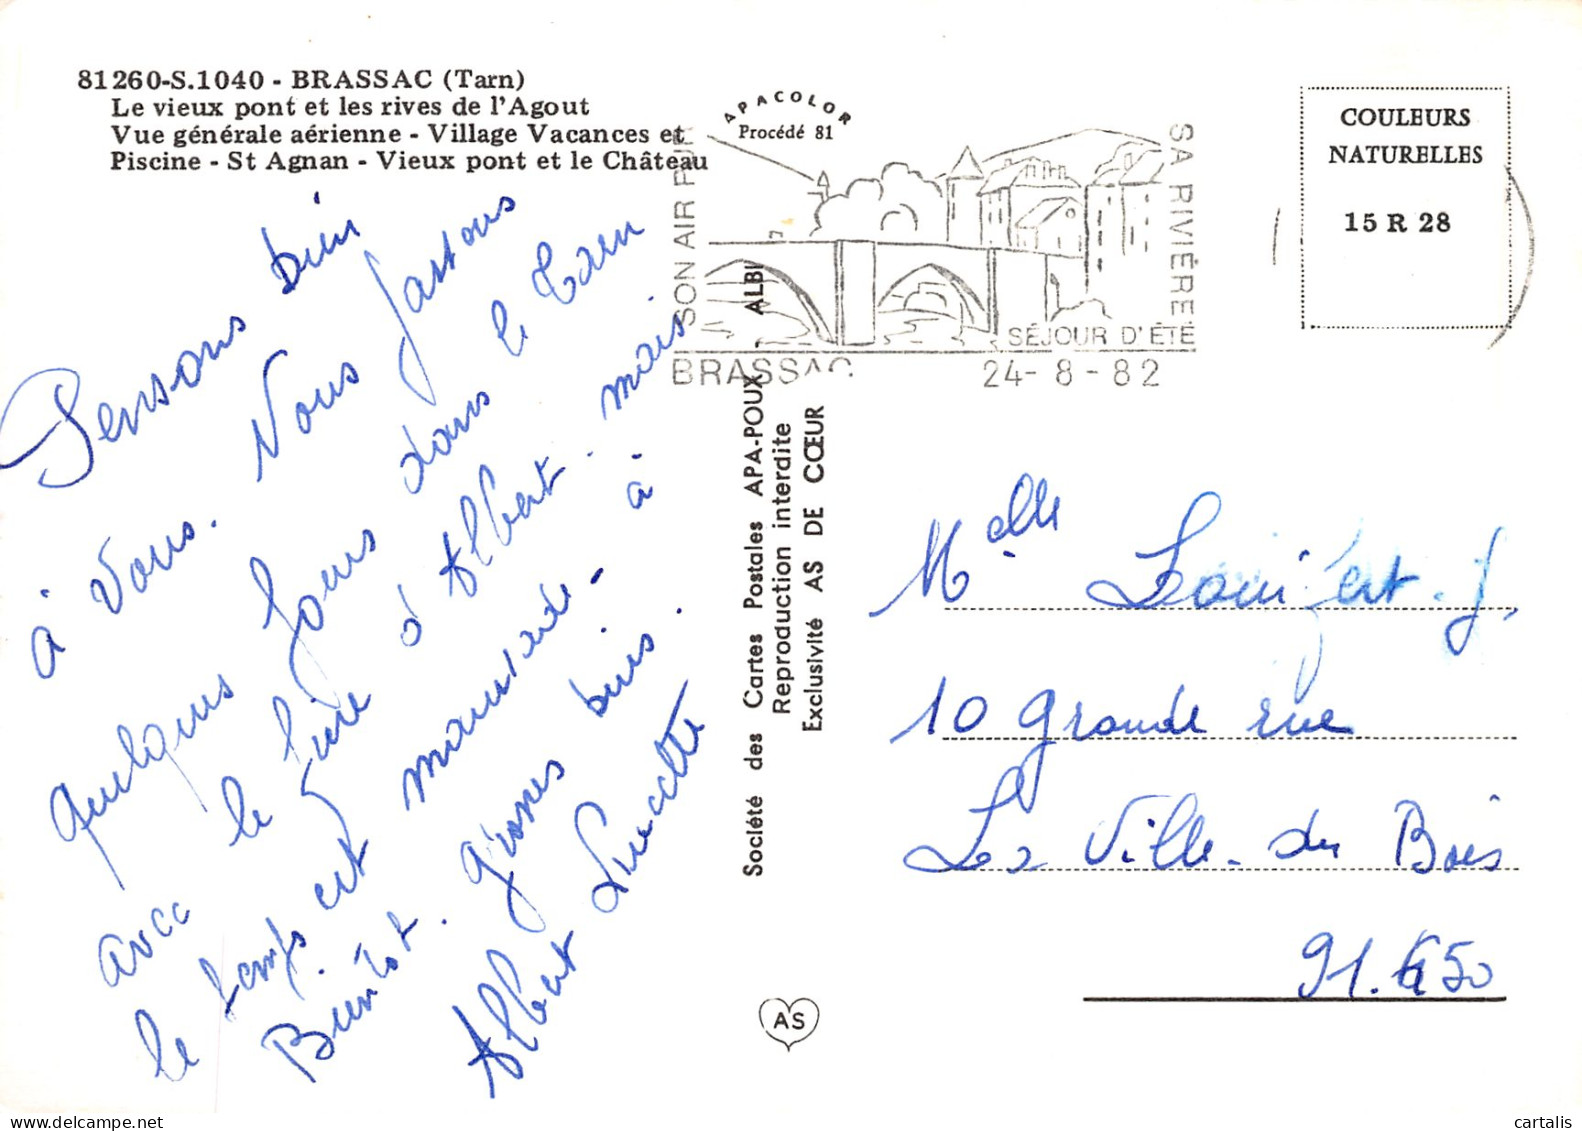 81260-S.1040 - BRASSAC (Tarn)
Le vieux pont et les rives de l'Agout
Vue générale aérienne - Village Vacances et
Piscine - St Agnan - Vieux pont et le Château
APACOLOR
Procédé 81
SON AIR PUR
SA RIVIÈRE
SÉJOUR D'ÉTÉ
BRASSAC
24-8-82
COULEURS
NATURELLES
15 R 28
Pensons bien
à Vous. Nous passons
quelques jours dans le Tarn
avec le frère d'Albert. mais
le temps est maussade. à
Bientôt. grosses bises.
Albert Lucette
Société des Cartes Postales APA-POUX - ALBI
Reproduction interdite
Exclusivité AS DE CŒUR
AS
Melle J.
10 grande rue
La Ville du Bois
91.650
cartalis